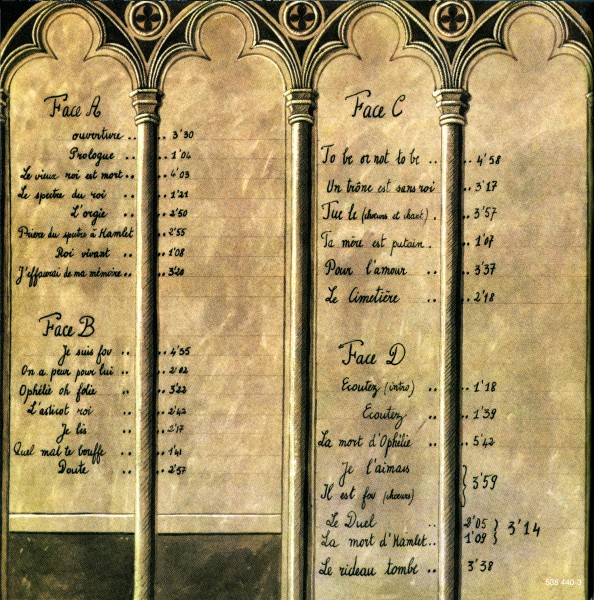 Face A
ouverture .... 3'30
Prologue .... 1'04
Le vieux roi est mort.... 4'03
Le spectre du roi .... 1'21
L'orgie .... 2'50
Prière du spectre à Hamlet 2'55
Roi vivant .... 1'08
J'effacerai de ma mémoire.... 3'20
Face B
Je suis fou .... 4'35
On a peur pour lui .... 2'02
Ophélie oh folie .... 3'22
L'asticot roi .... 2'42
Je lis .... 2'17
Quel mal te bouffe .... 1'41
Doute .... 2'57
Face C
To be or not to be .... 4'58
Un trône est sans roi .. 3'17
Tue le (choeurs et chant) ... 3'57
Ta mère est putain... 1'07
Pour l'amour .... 3'37
Le Cimetière .... 2'18
Face D
Ecoutez (intro) .... 1'18
Ecoutez .... 1'39
La mort d'Ophélie .... 5'42
Je l'aimais
Il est fou (choeurs) } 3'59
Le Duel .. 2'05
La mort d'Hamlet.. 1'09 } 3'14
Le rideau tombe .... 3'38
538 440-3